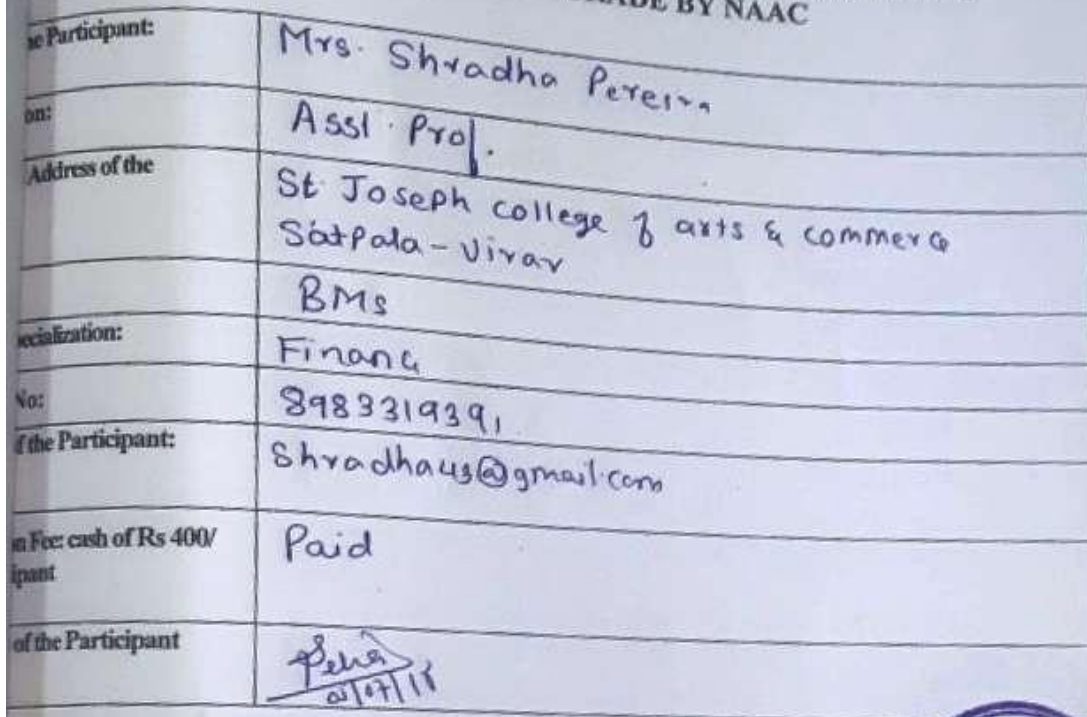 BY NAAC
Participant:
Mrs. Shradha Pereira
on:
Asst. Prof.
Address of the
St. Joseph college of arts & commerce
Satpala - Virar
BMS
ecialization:
Finance
No:
8983319391
f the Participant:
@gmail.com
n Fee: cash of Rs 400/
ipant
Paid
of the Participant